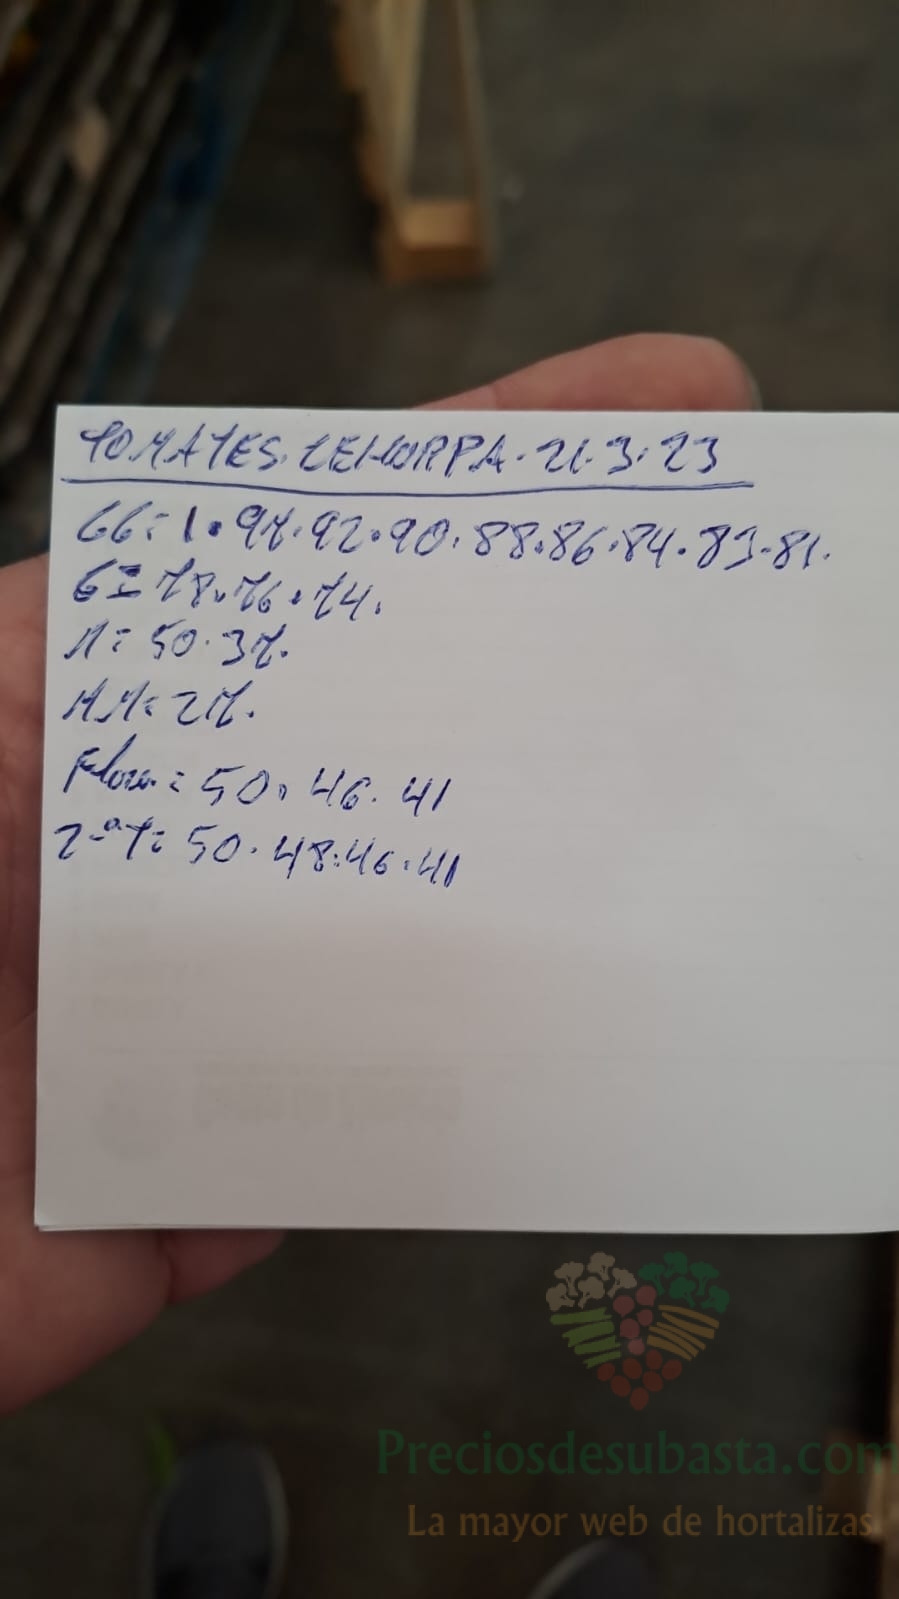 TOMATES. ZEHORPA. 21.3.23
GG = 1.97.92.90.88.86.84.83.81.
G = 78.76.74.
M = 50.37.
MM = 27.
Flora = 50. 46. 41
2-ªT = 50.48.46.41
Preciosdesubasta.com
La mayor web de hortalizas